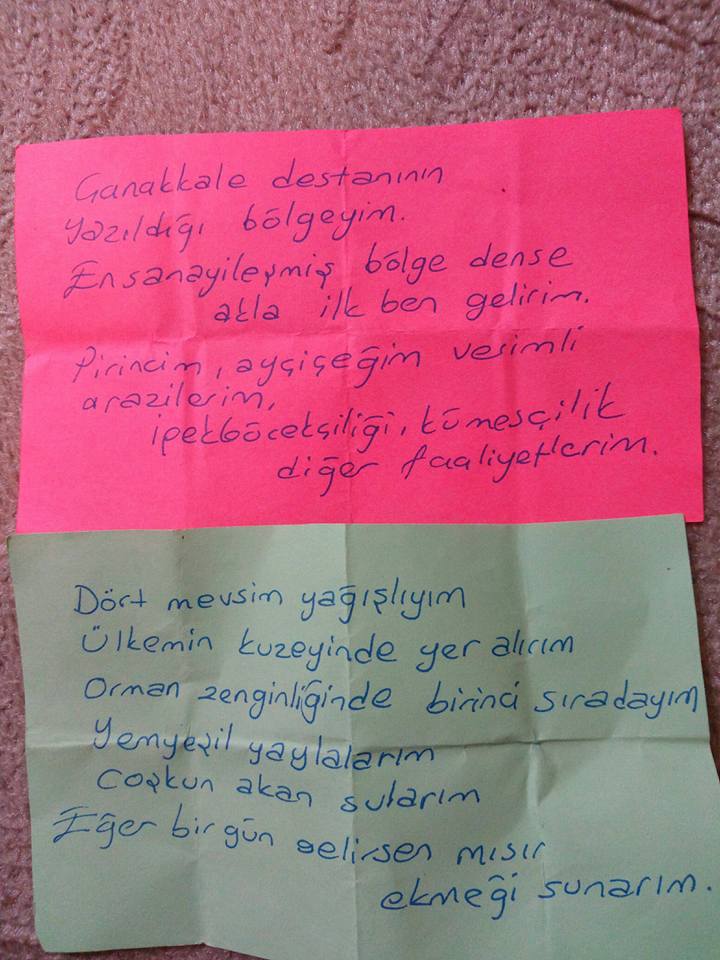 Çanakkale destanının
yazıldığı bölgeyim.
En sanayileşmiş bölge dense
akla ilk ben gelirim.
Pirincim, ayçiçeğim verimli
arazilerim,
ipekböcekçiliği, kümesçilik
diğer faaliyetlerim.
Dört mevsim yağışlıyım
Ülkemin kuzeyinde yer alırım
Orman zenginliğinde birinci sıradayım
Yemyeşil yaylalarım
Coşkun akan sularım
Eğer bir gün gelirsen mısır
ekmeği sunarım.